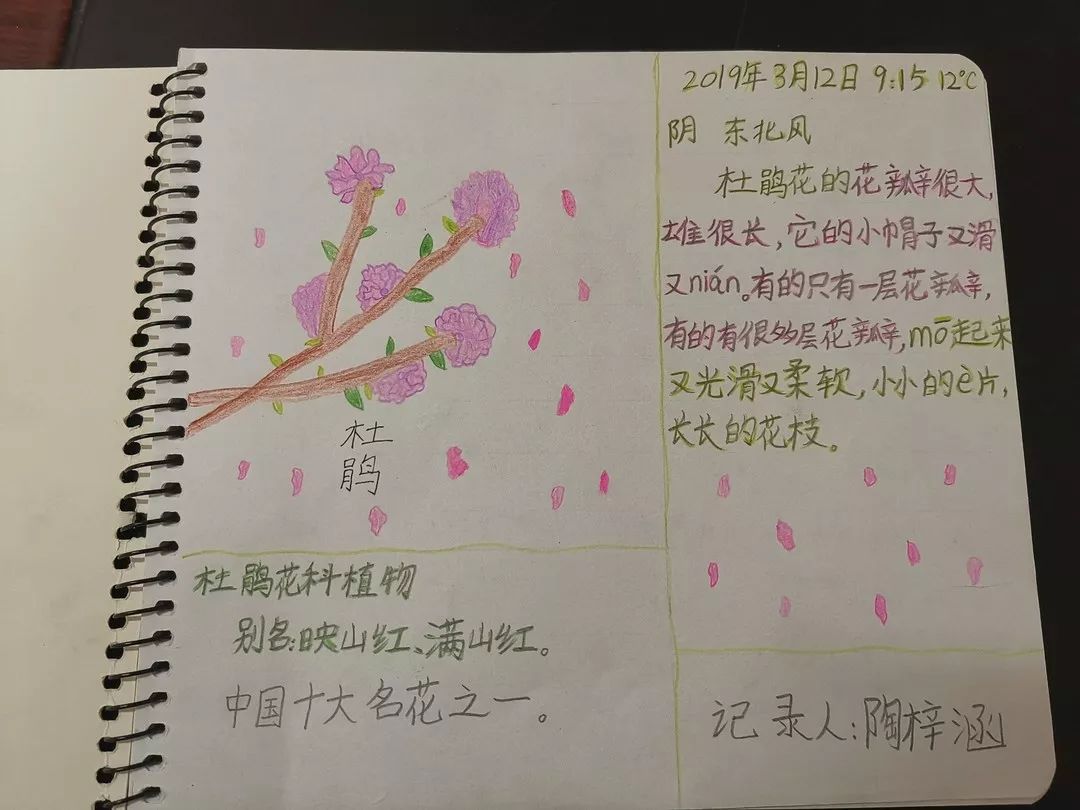 杜
鹃
杜鹃花科植物
别名:映山红、满山红。
中国十大名花之一。
2019年3月12日 9:15 12℃
阴 东北风
杜鹃花的花瓣很大,
雄很长,它的小帽子又滑
又nián。有的只有一层花瓣,
有的有很多层花瓣,mō起来
又光滑又柔软,小小的è片,
长长的花枝。
记录人:陶梓涵